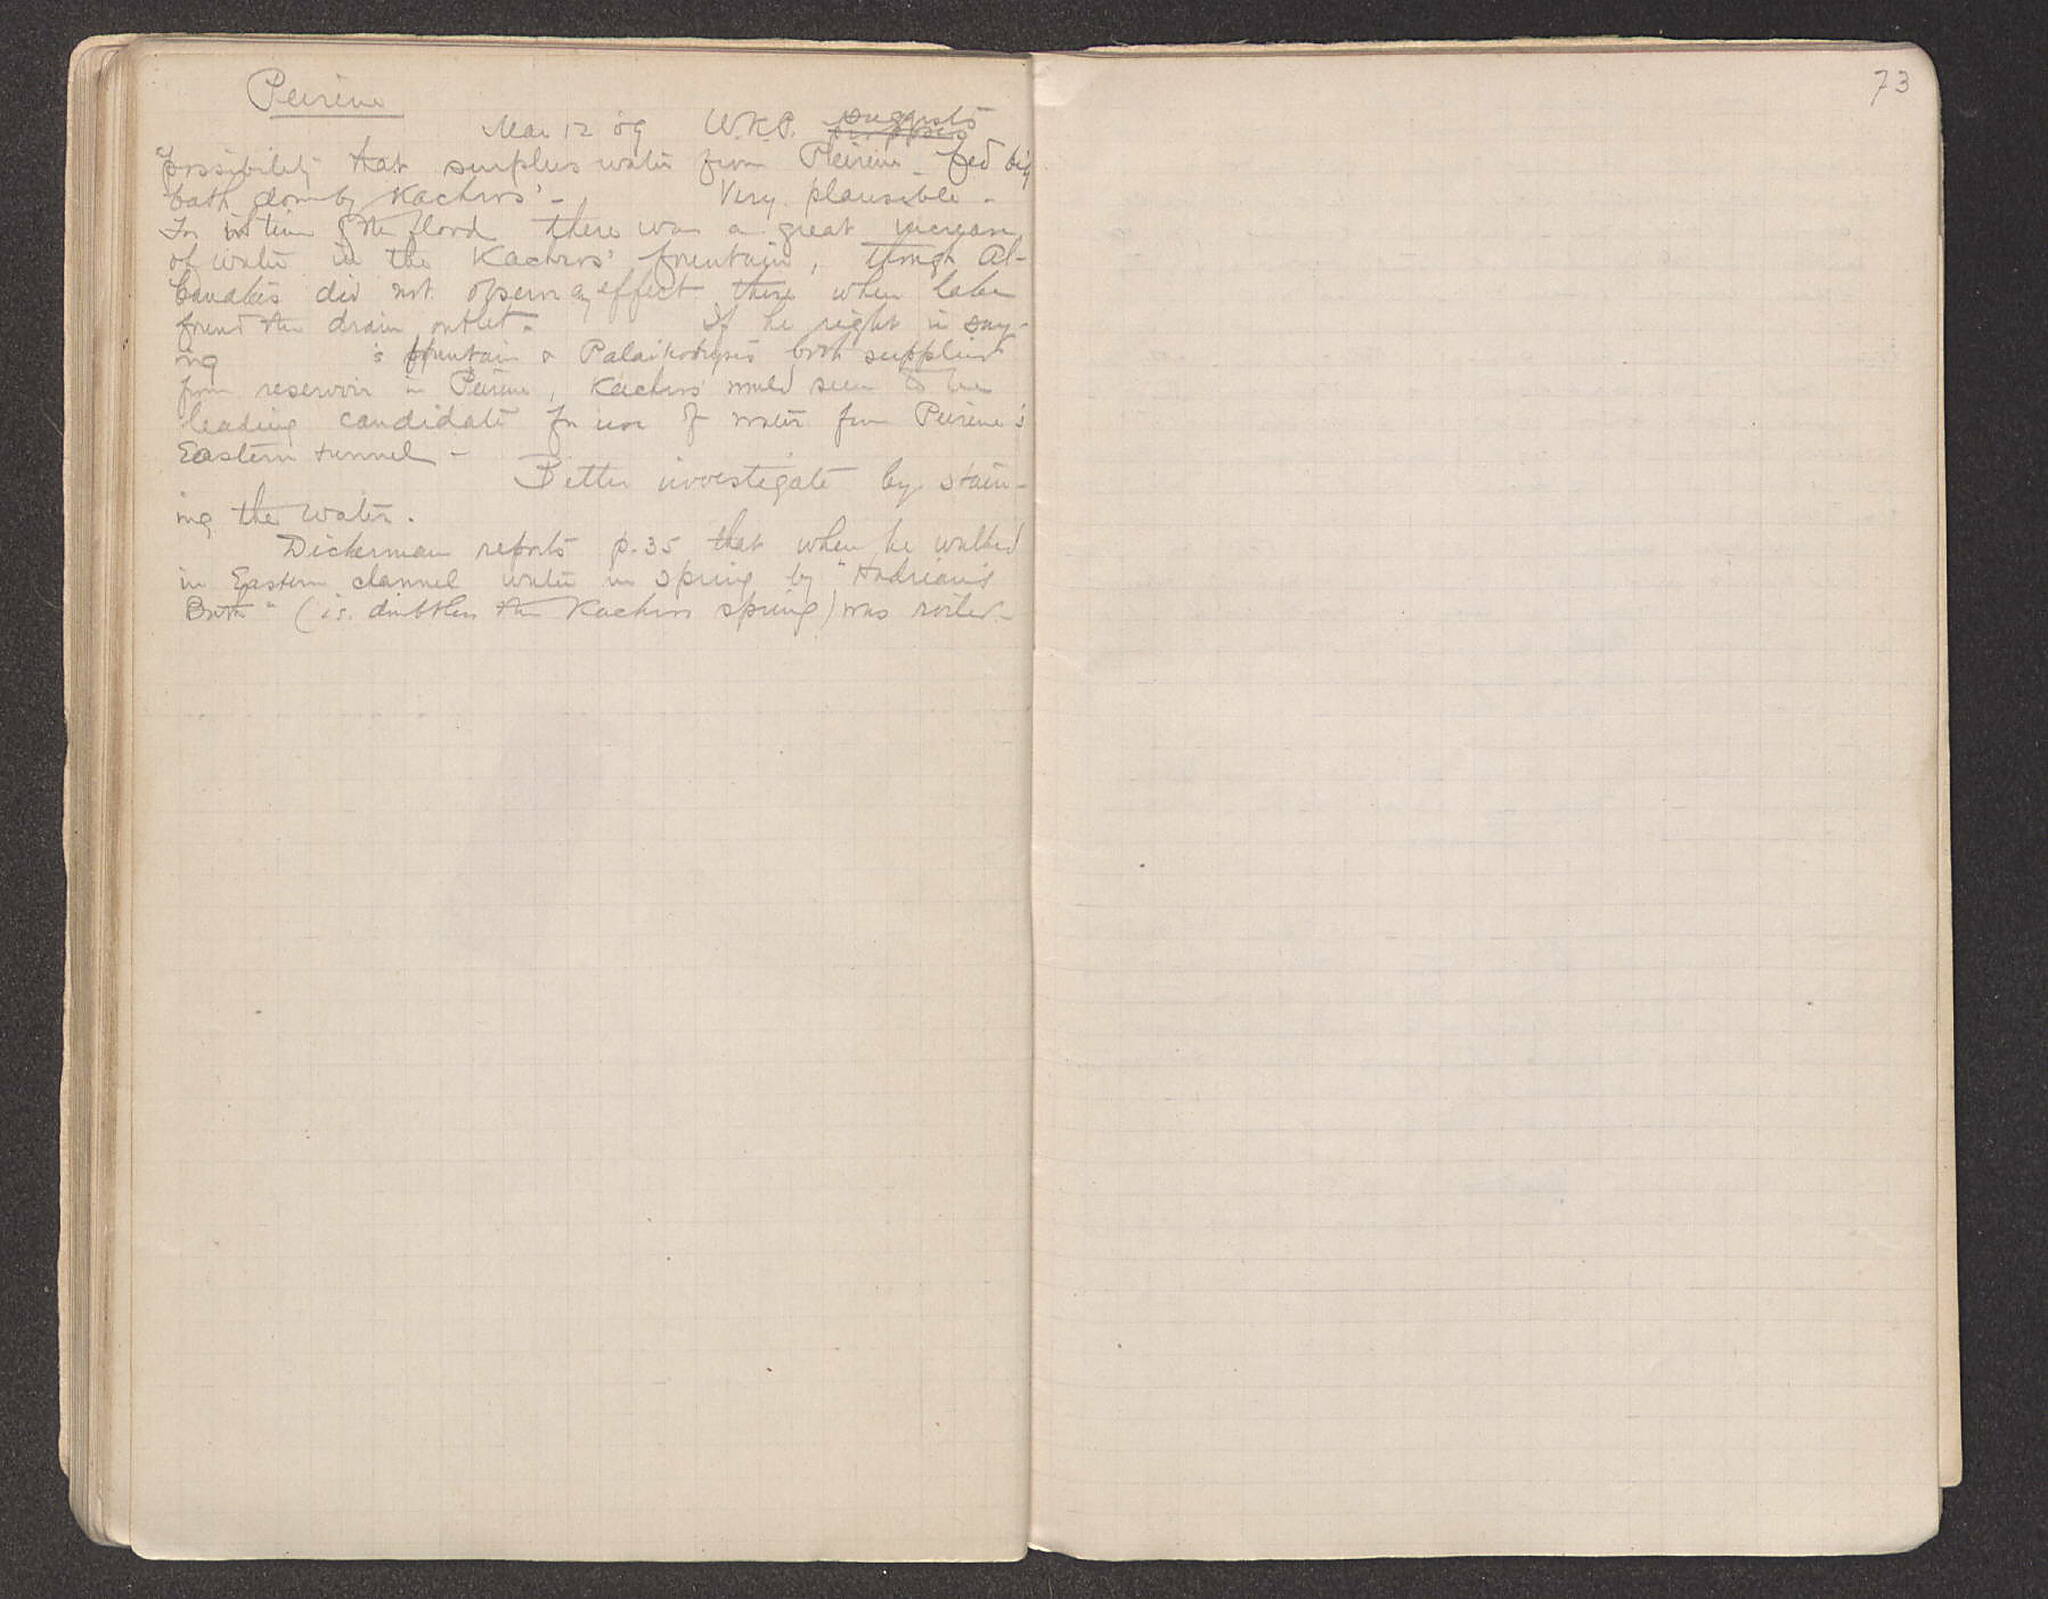 Peirene
Mar 12 '09 W.K.P. suggests
possibility that surplus water from Peirene fed big
bath down by Kachros' -
Very plausible -
For in time of the flood there was a great increase
of water in the Kachros' fountain, though Al-
banakis did not observe any effect there when
found the drain outlet -
If he right in say-
ing 's fountain & Palaikodysis both supplied
from reservoir in Peirene, Kachros' would seem to be
leading candidate for use of water from Peirene's
Eastern tunnel -
Better investigate by stain-
ing the water.
Dickerman reports p. 35 that when he walked
in Eastern channel water in spring by "Hadrian's
Bath" (i.e. doubtless the Kachros spring) was roiled -
73